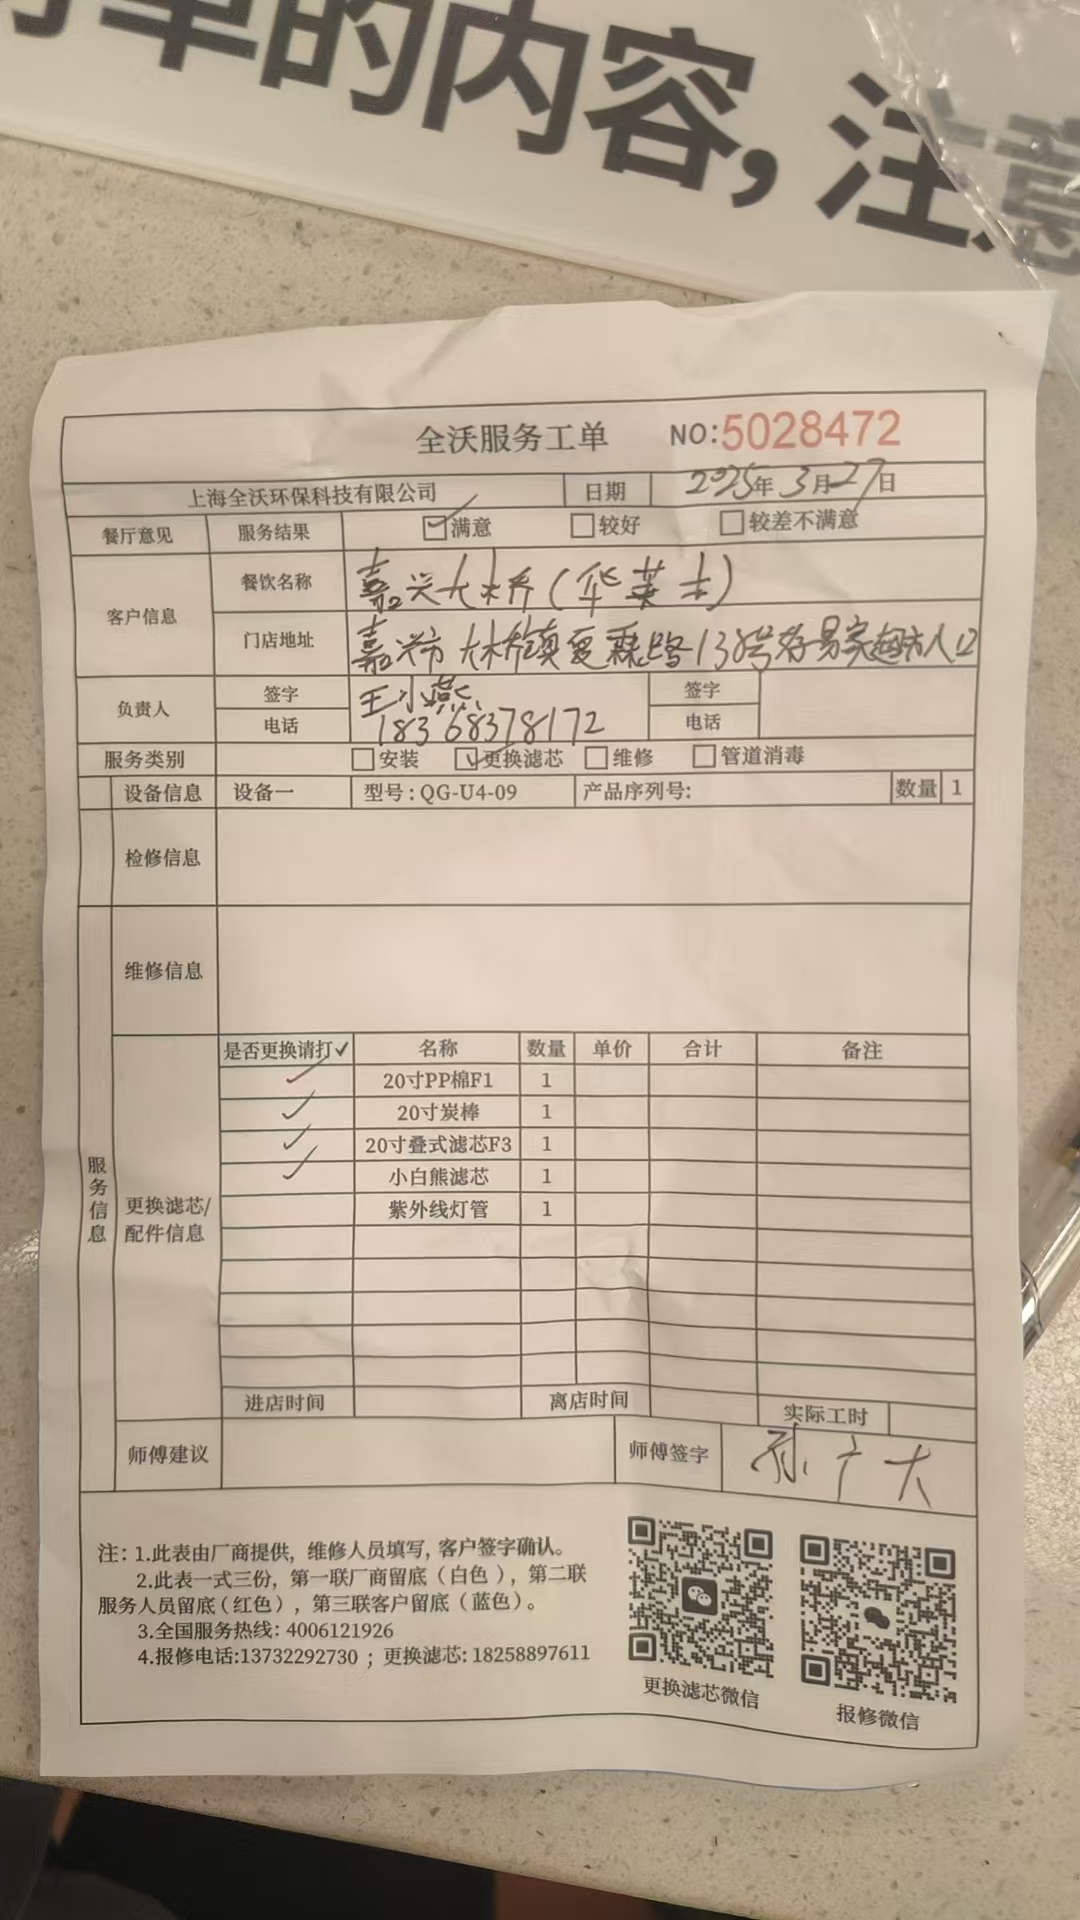 单的内容，注意
全沃服务工单 NO:5028472
上海全沃环保科技有限公司 日期 2025年3月27日
餐厅意见 服务结果 ☑满意 □较好 □较差不满意
客户信息 餐饮名称 嘉兴大桥(华莱士)
门店地址 嘉兴市大桥镇 138号 易家超市入口
负责人 签字 王小燕 签字
电话 18368378172 电话
服务类别 □安装 ☑更换滤芯 □维修 □管道消毒
设备信息 设备一 型号:QG-U4-09 产品序列号: 数量 1
检修信息
维修信息
服务信息
更换滤芯/配件信息
是否更换请打✓ 名称 数量 单价 合计 备注
✓ 20寸PP棉F1 1
✓ 20寸炭棒 1
✓ 20寸叠式滤芯F3 1
✓ 小白熊滤芯 1
紫外线灯管 1
进店时间 离店时间 实际工时
师傅建议 师傅签字 孙广大
注：1.此表由厂商提供，维修人员填写，客户签字确认。
2.此表一式三份，第一联厂商留底（白色），第二联
服务人员留底（红色），第三联客户留底（蓝色）。
3.全国服务热线：4006121926
4.报修电话:13732292730；更换滤芯: 18258897611
更换滤芯微信 报修微信